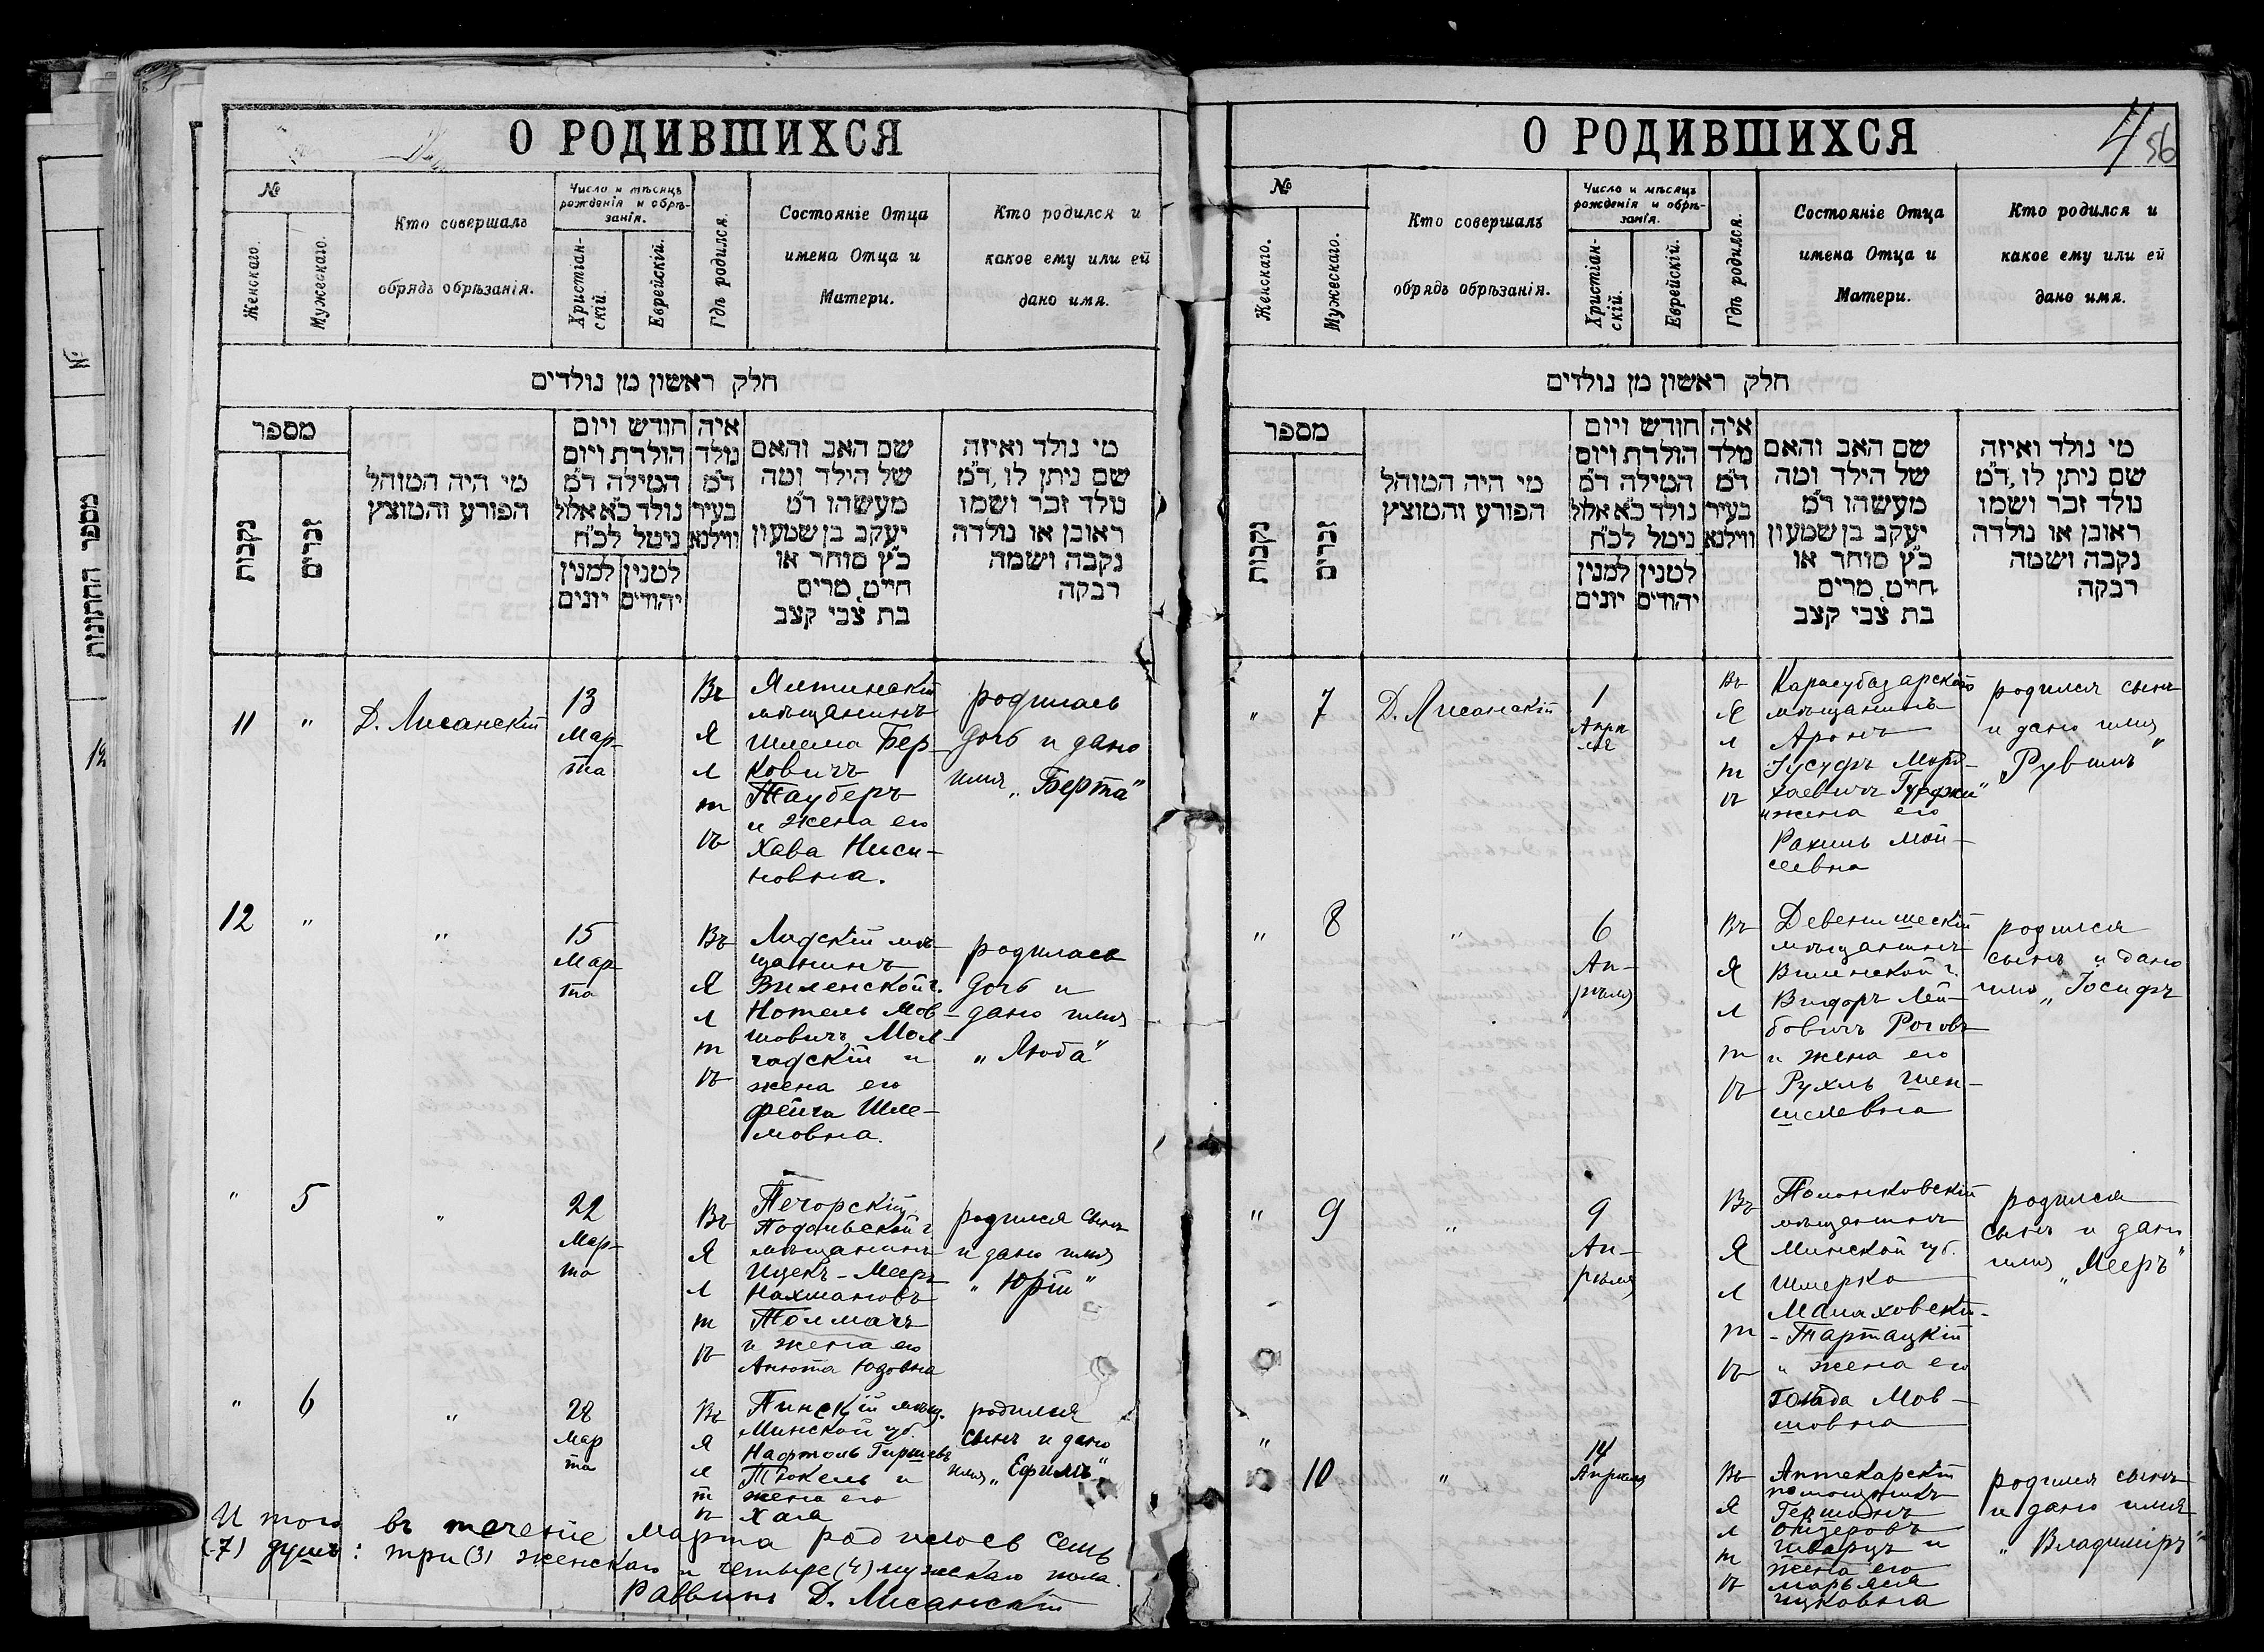 О РОДИВШИХСЯ
№
Женскаго.
Мужескаго.
Кто совершалъ
обрядъ обрѣзанія.
Число и мѣсяцъ
рожденія и обрѣ-
занія.
Христіан-
скій.
Еврейскій.
Гдѣ родился.
Состояніе Отца
имена Отца и
Матери.
Кто родился и
какое ему или ей
дано имя.
חלק ראשון מן נולדים
מספר
נקבות
זכרים
מי היה המוהל
הפורע והמוצץ
חודש ויום
הולדת ויום
המילה ד"מ
נולד כ"א אלול
ניטל לכ"ח
למנין יהודים
למנין יונים
איה
נולד
ד"מ
בעיר
ווילנא
שם האב והאם
של הילד ומה
מעשהו ד"מ
יעקב בן שמעון
כ"ץ סוחר או
חייט, מרים
בת צבי קצב
מי נולד ואיזה
שם ניתן לו, ד"מ
נולד זכר ושמו
ראובן או נולדה
נקבה ושמה
רבקה
11 " Д. Лисанскій
13
Мар-
та
Въ
Я
л
т
ѣ
Ялтинскій
мѣщанинъ
Шлема Бер-
ковичъ
Тауберъ
и жена его
Хава Ниси-
новна.
родилась
дочь и дано
имя „Берта"
12 " "
15
Мар-
та
Въ
Я
л
т
ѣ
Лидскій мѣ-
щанинъ
Виленской г.
Нотель Мов-
шовичъ Мол-
чадскій и
жена его
Фейга Шле-
мовна.
родилась
дочь и
дано имя
„Люба"
" 5 "
22
Мар-
та
Въ
Я
л
т
ѣ
Печорскій
Подольской г
мѣщанинъ
Ицекъ-Мееръ
Нахмановъ
Толмачъ
и жена его
Анюта Юдовна
родился сынъ
и дано имя
„Юрій"
" 6 "
28
Мар
та
Въ
Я
л
т
ѣ
Пинскій мѣщ.
Минской губ.
Нафтоль Гиршевъ
Тюкель и
жена его
Хая
родился
сынъ и дано
имя „Ефимъ"
И того въ теченіе марта родилось семь
(7) душъ: три (3) женскаго и четыре (4) мужскаго пола.
Раввинъ Д. Лисанскій
О РОДИВШИХСЯ
4
56
№
Женскаго.
Мужескаго.
Кто совершалъ
обрядъ обрѣзанія.
Число и мѣсяцъ
рожденія и обрѣ-
занія.
Христіан-
скій.
Еврейскій.
Гдѣ родился.
Состояніе Отца
имена Отца и
Матери.
Кто родился и
какое ему или ей
дано имя.
חלק ראשון מן נולדים
מספר
נקבות
זכרים
מי היה המוהל
הפורע והמוצץ
חודש ויום
הולדת ויום
המילה ד"מ
נולד כ"א אלול
ניטל לכ"ח
למנין יהודים
למנין יונים
איה
נולד
ד"מ
בעיר
ווילנא
שם האב והאם
של הילד ומה
מעשהו ד"מ
יעקב בן שמעון
כ"ץ סוחר או
חייט, מרים
בת צבי קצב
מי נולד ואיזה
שם ניתן לו, ד"מ
נולד זכר ושמו
ראובן או נולדה
נקבה ושמה
רבקה
" 7 Д. Лисанскій
1
Апрѣ
ля
Въ
Я
л
т
ѣ
Карасубазарскій
мѣщанинъ
Аронъ
Іусуфъ Морд-
хаевичъ Гурджи
и жена его
Рахиль Мои-
сеевна
родился сынъ
и дано имя
„Рувинъ"
" 8 "
6
Ап-
рѣля
Въ
Я
л
т
ѣ
Девенишескій
мѣщанинъ
Виленской г.
Вигдоръ Лей-
бовичъ Роговъ
и жена его
Рухль Шен-
шелевна
родился
сынъ и дано
имя „Іосифъ
" 9 "
9
Ап-
рѣля
Въ
Я
л
т
ѣ
Полонковскій
мѣщанинъ
Минской губ.
Шмерко
Малаховскій-
-Тартацкій
и жена его
Гольда Мов-
шовна
родился
сынъ и дано
имя „Мееръ"
" 10 "
14
Апрѣля
Въ
Я
л
т
ѣ
Аптекарскій
помощникъ
Гершонъ
Ойзеровъ
Шварцъ и
жена его
Марьяся
Ицковна
родился сынъ
и дано имя
„Владиміръ"